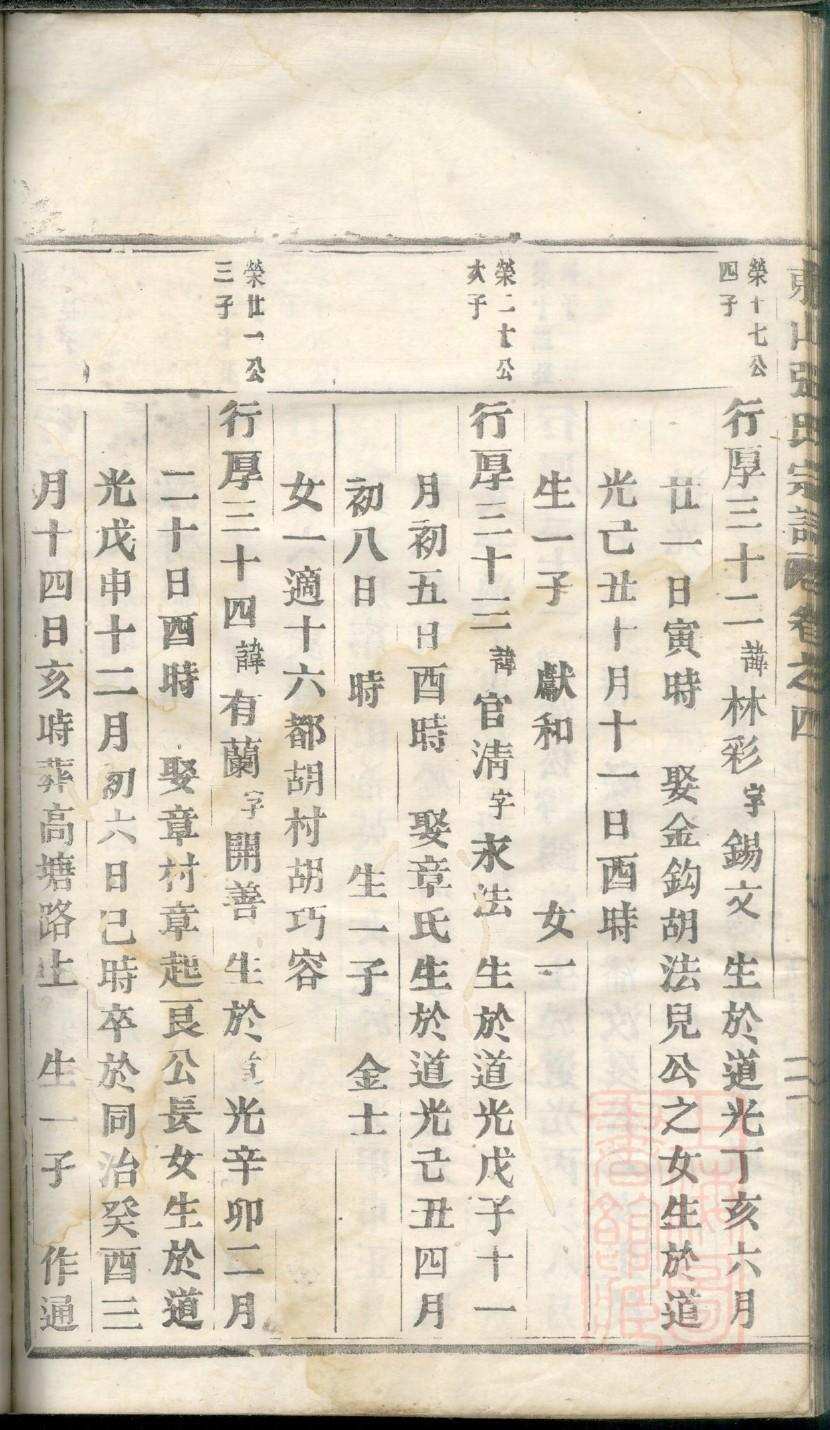 東山張氏宗譜卷之四
榮十七公
四子
行厚三十二諱林彩字錫文 生於道光丁亥六月
廿一日寅時 娶金鈎胡法兒公之女生於道
光己丑十月十一日酉時
生一子 獻和 女一
榮二十公
次子
行厚三十三諱官清字永法 生於道光戊子十一
月初五日酉時 娶章氏生於道光己丑四月
初八日 時 生一子 金士
女一適十六都胡村胡巧容
榮廿一公
三子
行厚三十四諱有蘭字開善 生於道光辛卯二月
二十日酉時 娶章村章起良公長女生於道
光戊申十二月初六日巳時卒於同治癸酉三
月十四日亥時葬高塘路上 生一子 作通